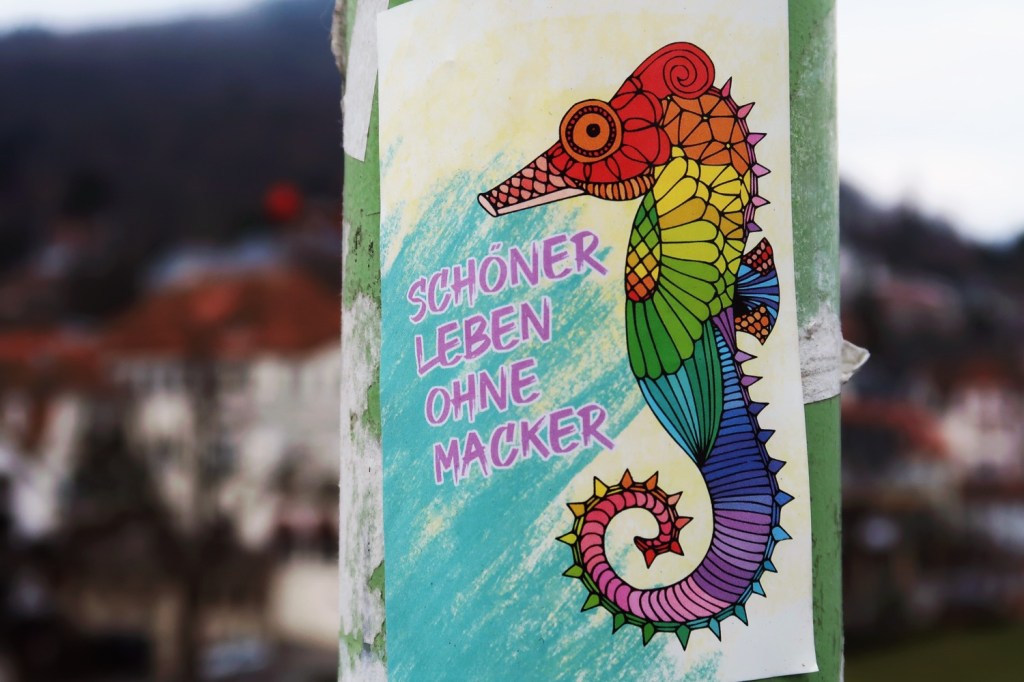 SCHÖNER
LEBEN
OHNE
MACKER